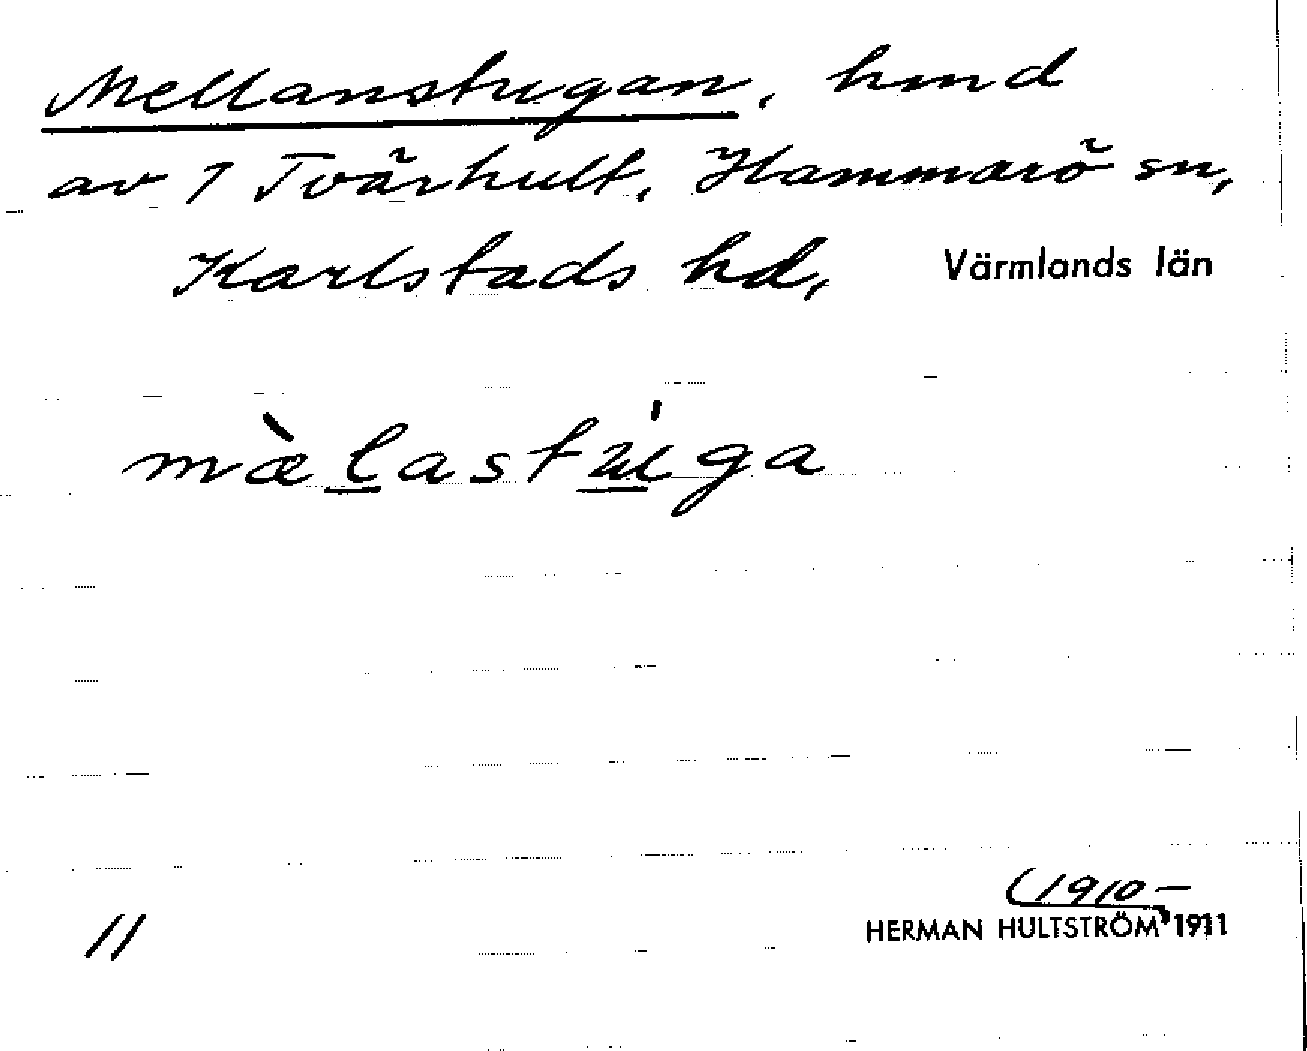 Mellanstugan, hmd
av 1 Tvärhult, Hammarö sn,
Karlstads hd, Värmlands län
mæ̀l̲astú̲ga
(1910–
11 HERMAN HULTSTRÖM 1911